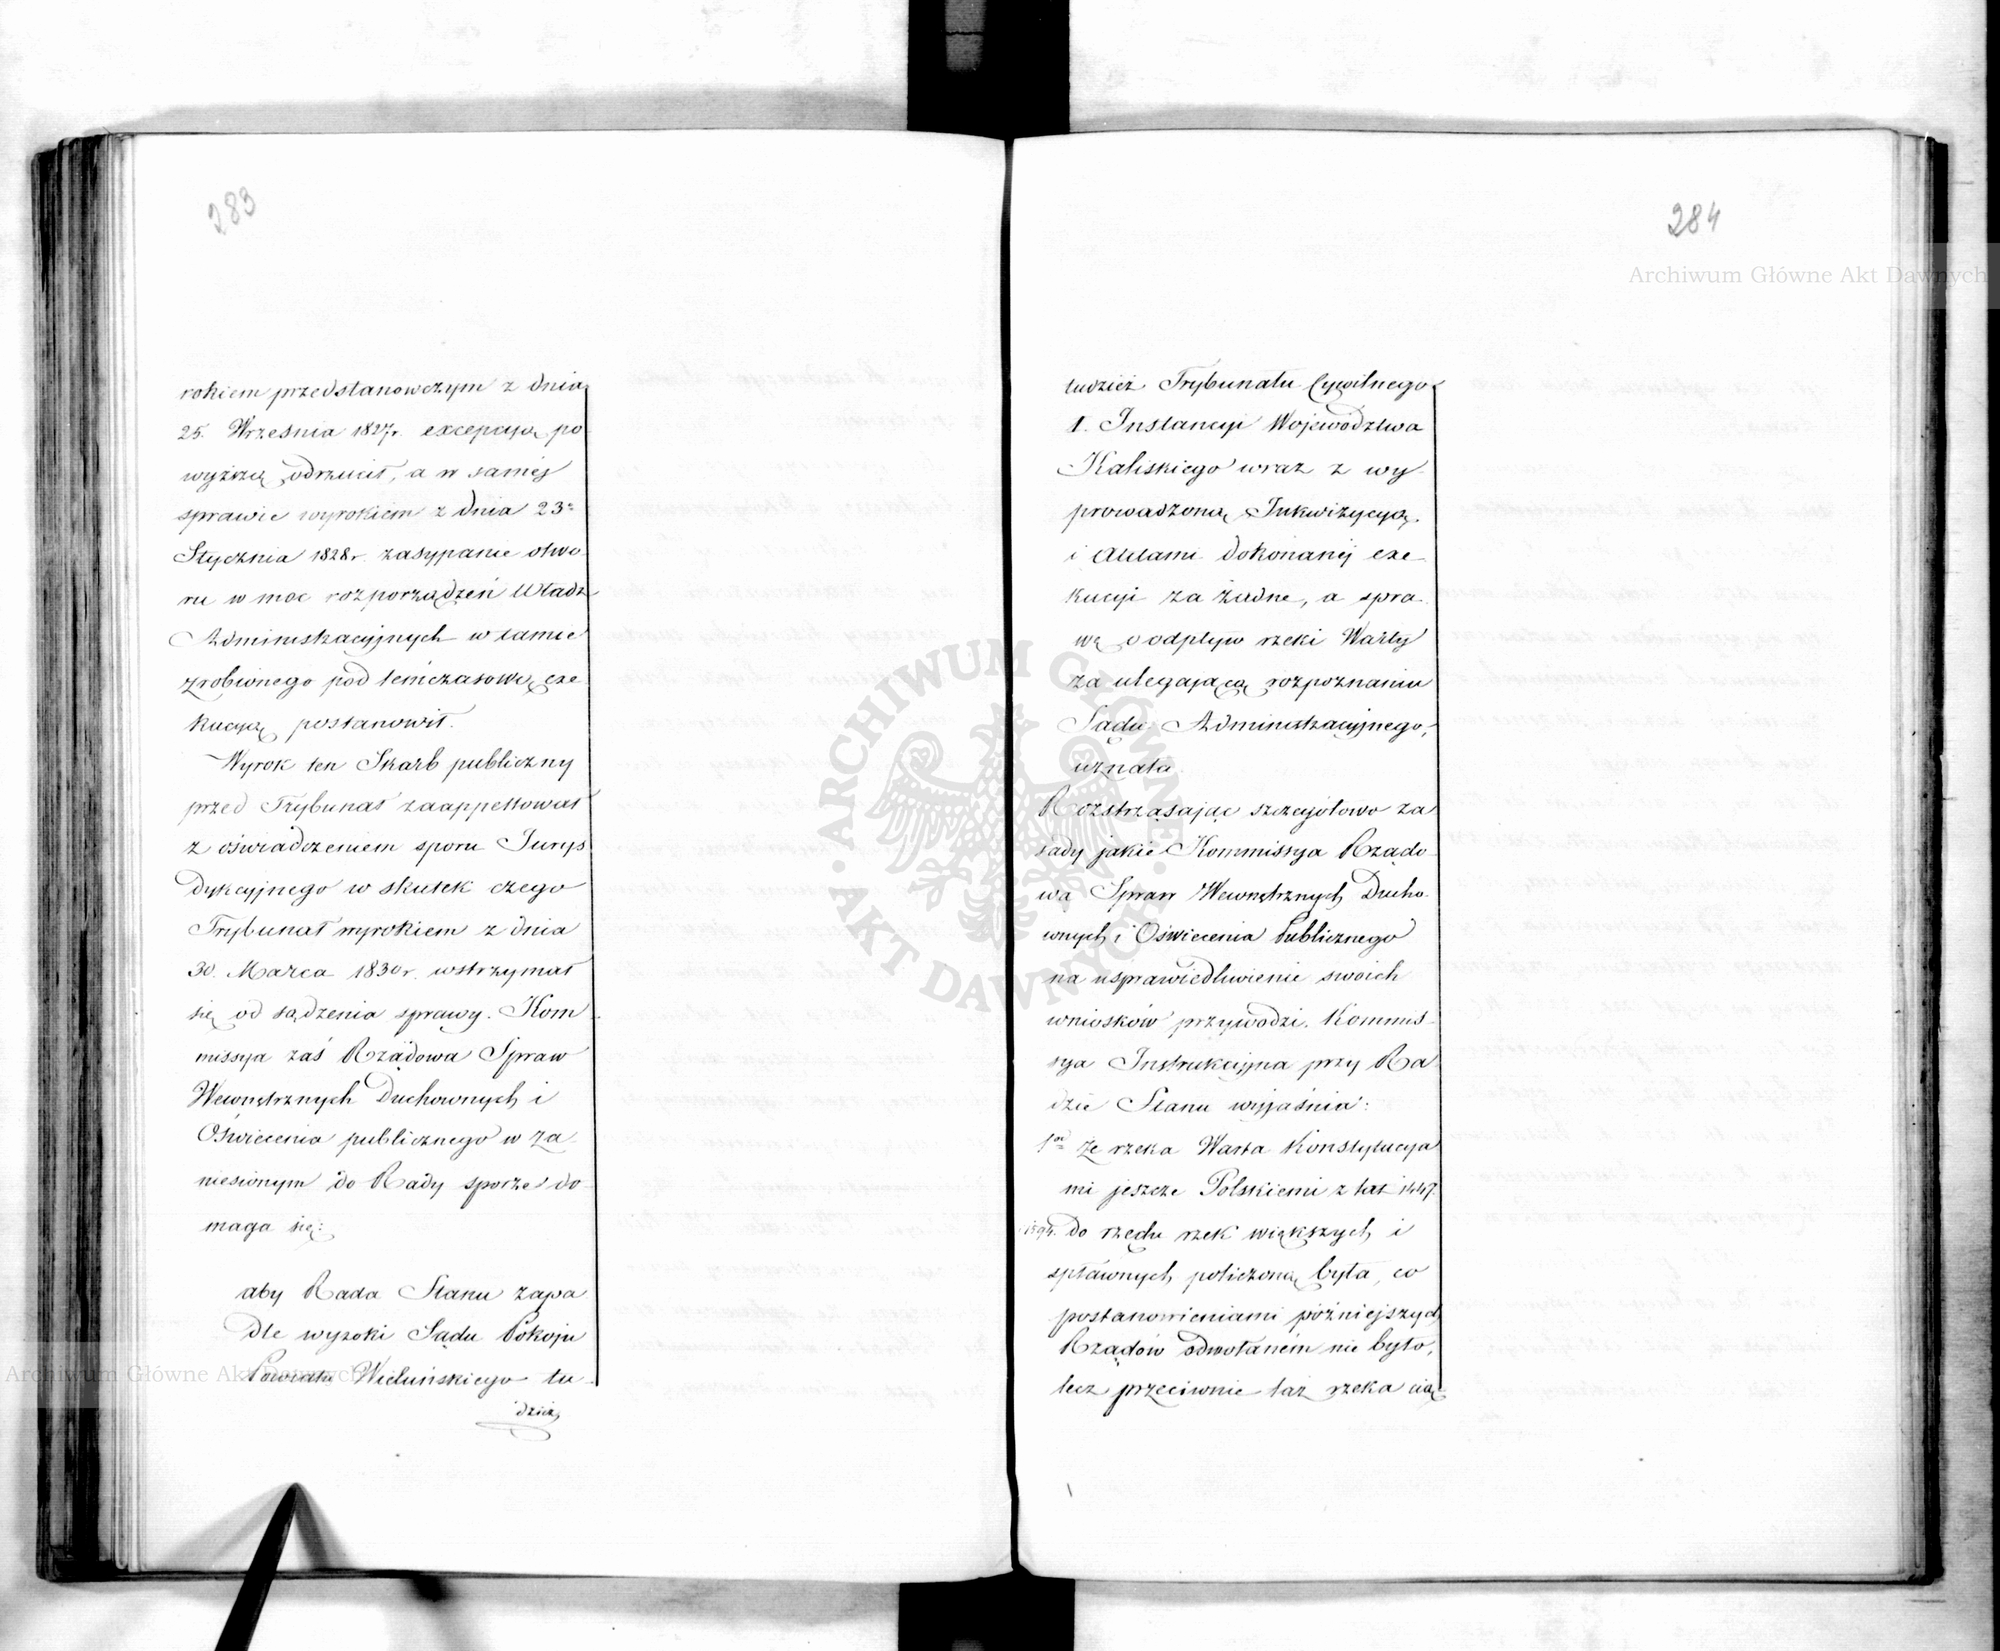 283
rokiem przedstanowczym z dnia
25. Września 1827r. excepcyą po
wyższą odrzucił, a w saméj
sprawie wyrokiem z dnia 23º
Stycznia 1828r. zasypanie otwo
ru w moc rozporządzeń Władz
Administracyjnych w tamie
zrobionego pod temczasową exe
kucyą postanowił.
Wyrok ten Skarb publiczny
przed Trybunał zaappellował
z oświadczeniem sporu Jurys
dykcyjnego w skutek czego
Trybunał wyrokiem z dnia
30. Marca 1830r. wstrzymał
się od sądzenia sprawy. Kom
missya zaś Rządowa Spraw
Wewnętrznych Duchownych i
Oświecenia publicznego w za
niesionym do Rady sporze do
maga się:
aby Rada Stanu zapa
dłe wyroki Sądu Pokoju
Powiatu Wieluńskiego tu
dzież
284
tudzież Trybunału Cywilnego
I. Instancyi Województwa
Kaliskiego wraz z wy
prowadzoną Inkwizycyą
i Aktami dokonanéj exe
kucyi za żadne, a spra
wę o odpływ rzeki Warty
za ulegającą rozpoznaniu
Sądu Administracyjnego,
uznała.
Rozstrząsając szczegółowo za
sady jakie Kommissya Rządo
wa Spraw Wewnętrznych Ducho
wnych i Oświecenia Publicznego
na usprawiedliwienie swoich
wniosków przywodzi. Kommis
sya Instrukcyjna przy Ra
dzie Stanu wyjaśnia:
1od Że rzeka Warta Konstytucya
mi jeszcze Polskiemi z lat 1447.
1594. do rzędu rzek większych i
spławnych policzoną była, co
postanowieniami późniejszych
Rządów odwołaném nie było,
lecz przeciwnie taż rzeka cią
Archiwum Główne Akt Dawnych
Archiwum Główne Akt Dawnych
ARCHIWUM GŁÓWNE · AKT DAWNYCH ·